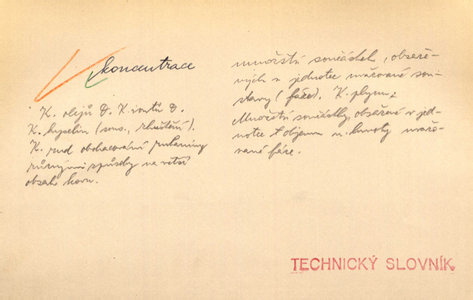 koncentrace
K. olejů D. K. vůní D.
K. kyselin (sms., zhuštění).
K. rud obohacování rudniny
různými způsoby na větší
obsah kovu.
množství součástek, obsaže-
ných v jednotce uvažované sou-
stavy (fáze). K. plynu:
Množství součástky obsažené v jed-
notce objemu n. hmoty uvažo-
vané fáze.
TECHNICKÝ SLOVNÍK